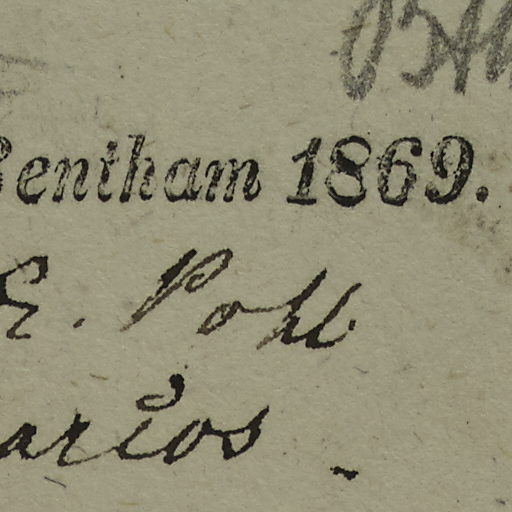 Bentham 1869.
E. Pohl
arios.